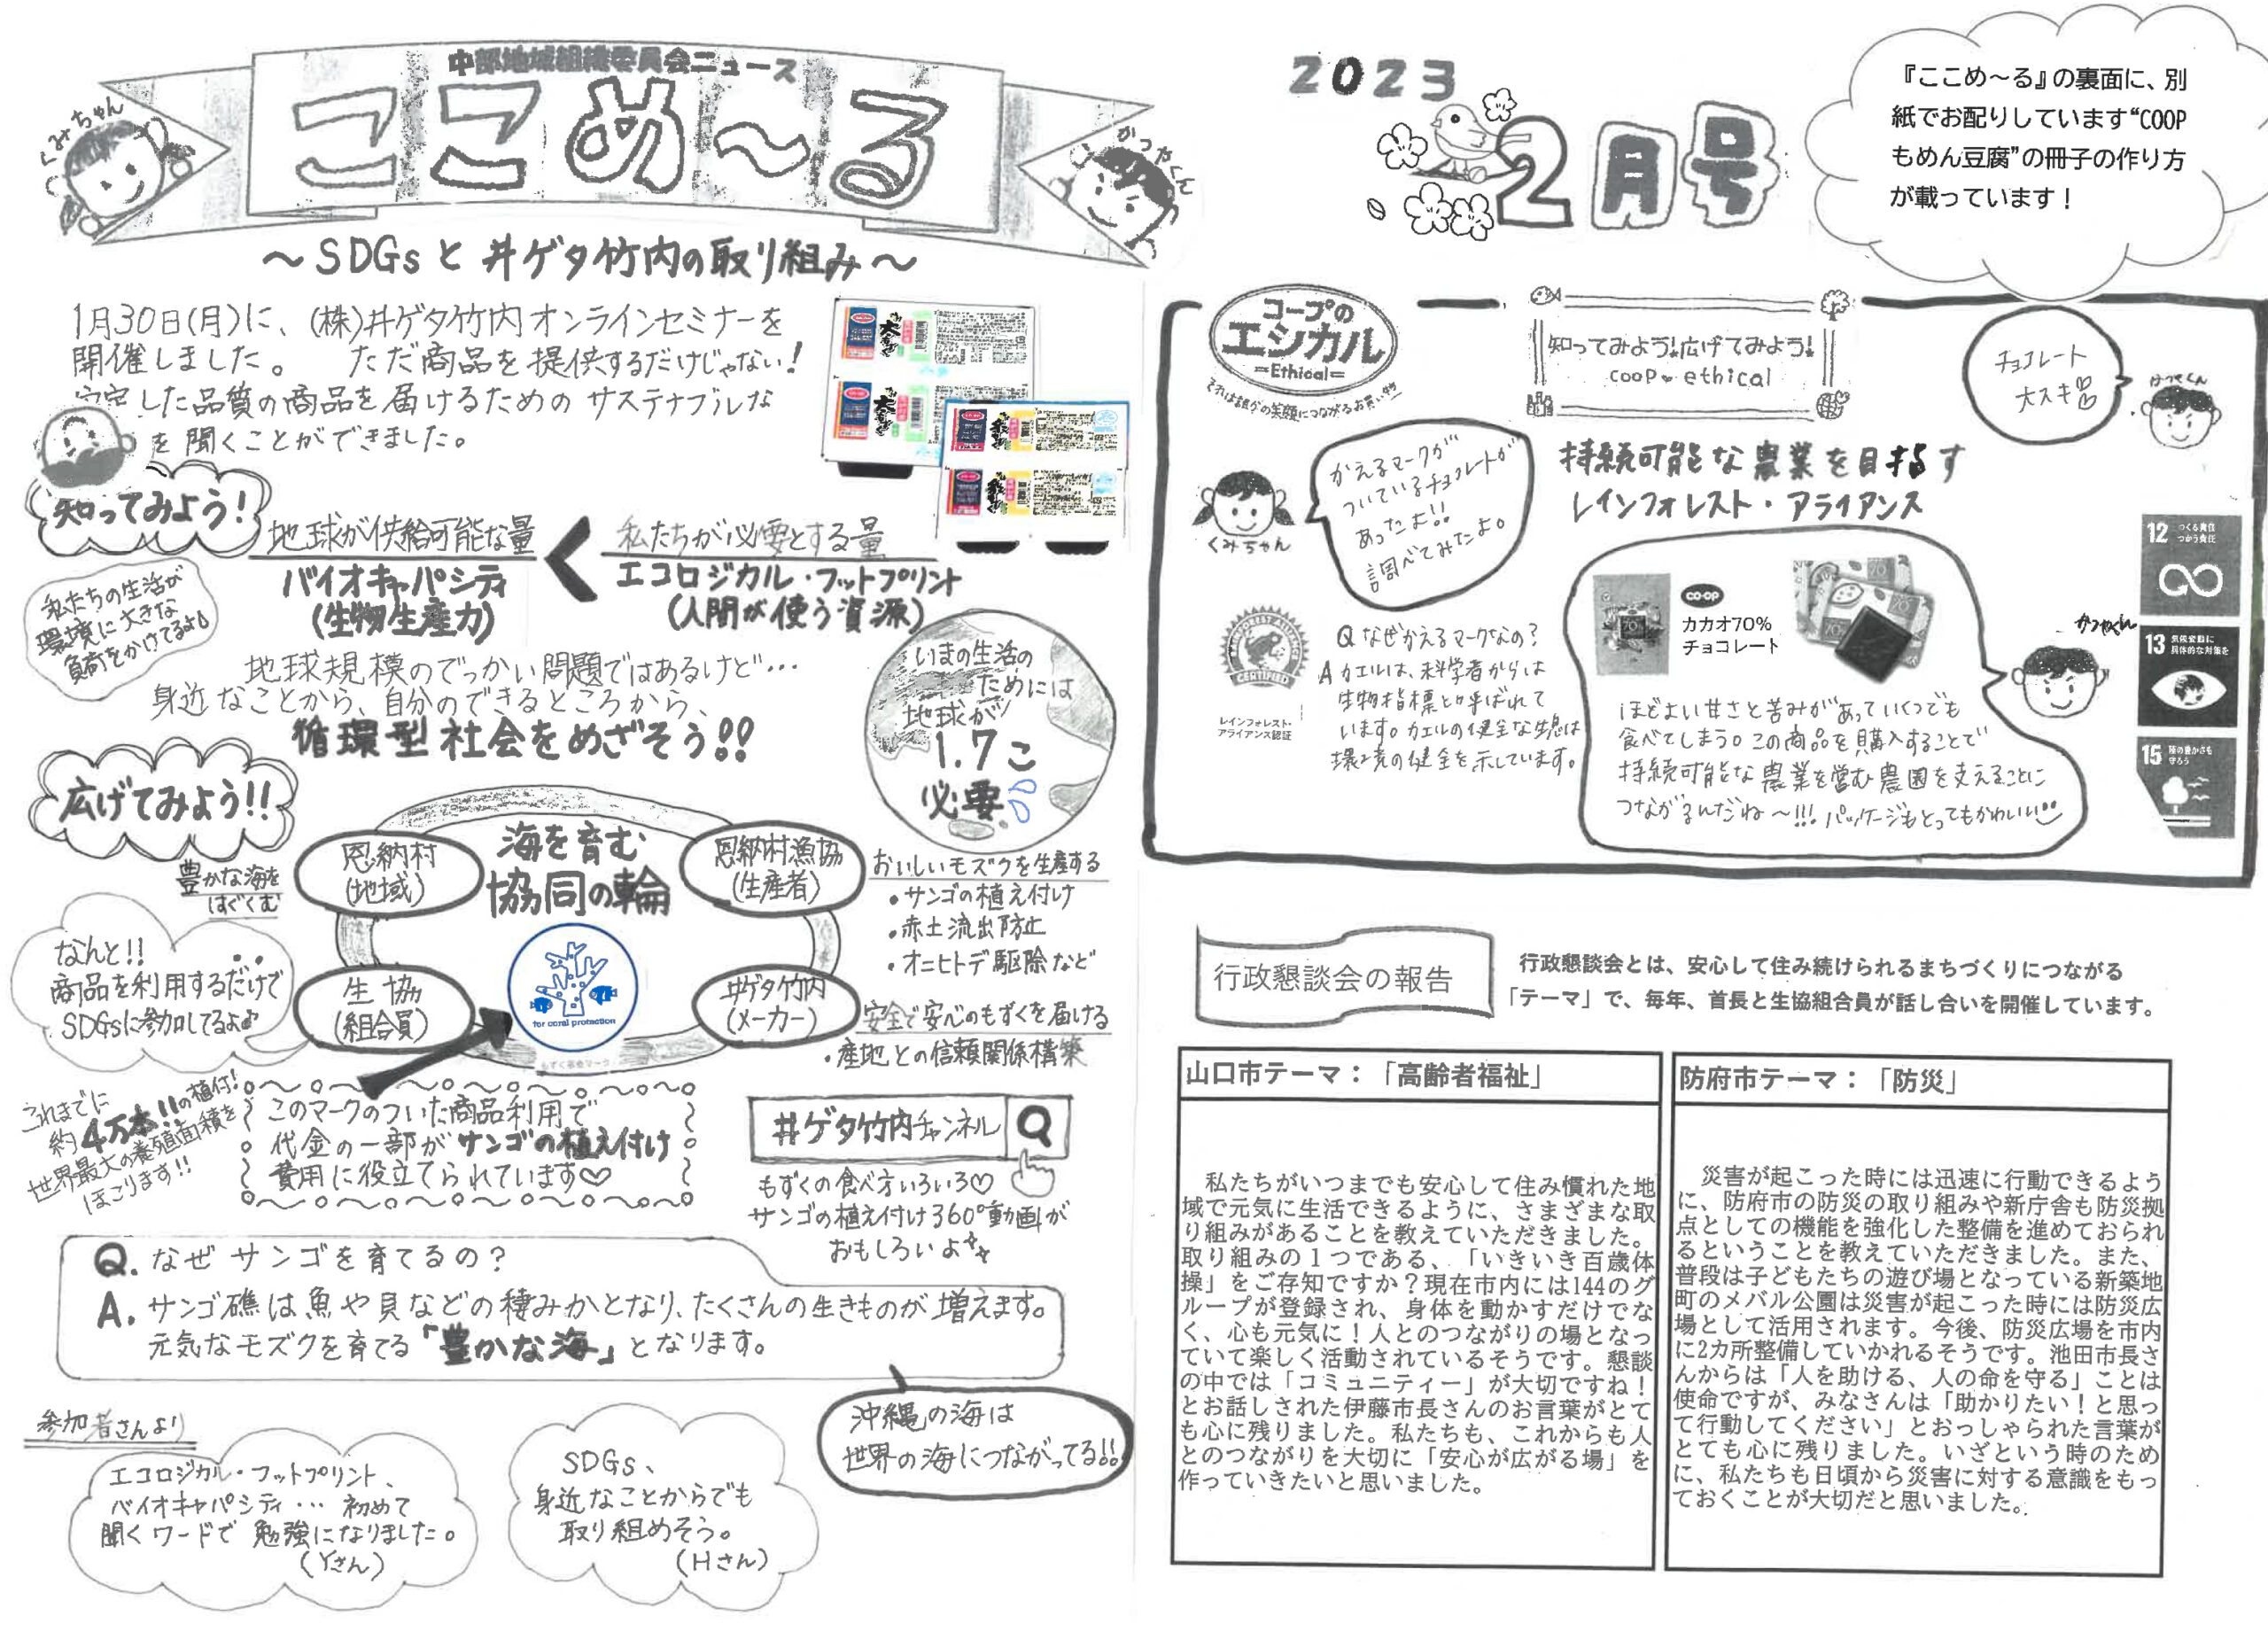 中部地域組織委員会ニュース
ここめ～る
くみちゃん
かつやくん
2023
2月号
『ここめ～る』の裏面に、別
紙でお配りしています“COOP
もめん豆腐”の冊子の作り方
が載っています！
～SDGsと井ゲタ竹内の取り組み～
1月30日(月)に、(株)井ゲタ竹内オンラインセミナーを
開催しました。 ただ商品を提供するだけじゃない!
した品質の商品を届けるための サステナブルな
を聞くことができました。
知ってみよう!
地球が供給可能な量
バイオキャパシティ
(生物生産力)
<
私たちが必要とする量
エコロジカル・フットプリント
(人間が使う資源)
私たちの生活が
環境に大きな
負荷をかけてるよ
地球規模のでっかい問題ではあるけど…
身近なことから、自分のできるところから、
循環型社会をめざそう!!
いまの生活の
ためには
地球が
1.7こ
必要
広げてみよう!!
豊かな海を
はぐくむ
恩納村
(地域)
海を育む
協同の輪
恩納村漁協
(生産者)
生協
(組合員)
井ゲタ竹内
(メーカー)
for coral protection
もずく基金マーク
おいしいモズクを生産する
・サンゴの植え付け
・赤土流出防止
・オニヒトデ駆除など
安全で安心のもずくを届ける
・産地との信頼関係構築
なんと!!
商品を利用するだけで
SDGsに参加してるよ♪
これまでに
約4万本!!の植付!
世界最大の養殖面積を
ほこります!!
このマークのついた商品利用で
代金の一部がサンゴの植え付け
費用に役立てられています♡
井ゲタ竹内チャンネル
もずくの食べ方いろいろ♡
サンゴの植え付け360°動画が
おもしろいよ
Q. なぜサンゴを育てるの?
A. サンゴ礁は魚や貝などの棲みかとなり、たくさんの生きものが増えます。
元気なモズクを育てる「豊かな海」となります。
沖縄の海は
世界の海につながってる!!
参加者さんより
エコロジカル・フットプリント、
バイオキャパシティ… 初めて
聞くワードで 勉強になりました。
(Yさん)
SDGs、
身近なことからでも
取り組めそう。
(Hさん)
コープの
エシカル
Ethical
それは誰かの笑顔につながるお買い物
知ってみよう!広げてみよう!
coop♥ethical
チョコレート
大スキ♡
かつやくん
かえるマークが
ついているチョコレートが
あったよ!!
調べてみたよ。
くみちゃん
持続可能な農業を目指す
レインフォレスト・アライアンス
RAINFOREST ALLIANCE
CERTIFIED
レインフォレスト・
アライアンス認証
Q なぜかえるマークなの?
A カエルは、科学者からは
生物指標と呼ばれて
います。カエルの健全な生息は
環境の健全を示しています。
CO・OP
カカオ70%
チョコレート
かつやくん
ほどよい甘さと苦みがあっていくつでも
食べてしまう。この商品を購入することで
持続可能な農業を営む農園を支えることに
つながるんだね～!!! パッケージもとってもかわいい
12 つくる責任
つかう責任
13 気候変動に
具体的な対策を
15 陸の豊かさも
守ろう
行政懇談会の報告
行政懇談会とは、安心して住み続けられるまちづくりにつながる
「テーマ」で、毎年、首長と生協組合員が話し合いを開催しています。
山口市テーマ：「高齢者福祉」
私たちがいつまでも安心して住み慣れた地
域で元気に生活できるように、さまざまな取
り組みがあることを教えていただきました。
取り組みの１つである、「いきいき百歳体
操」をご存知ですか？現在市内には144のグ
ループが登録され、身体を動かすだけでな
く、心も元気に！人とのつながりの場となっ
ていて楽しく活動されているそうです。懇談
の中では「コミュニティー」が大切ですね！
とお話しされた伊藤市長さんのお言葉がとて
も心に残りました。私たちも、これからも人
とのつながりを大切に「安心が広がる場」を
作っていきたいと思いました。
防府市テーマ：「防災」
災害が起こった時には迅速に行動できるよう
に、防府市の防災の取り組みや新庁舎も防災拠
点としての機能を強化した整備を進めておられ
るということを教えていただきました。また、
普段は子どもたちの遊び場となっている新築地
町のメバル公園は災害が起こった時には防災広
場として活用されます。今後、防災広場を市内
に2カ所整備していかれるそうです。池田市長さ
んからは「人を助ける、人の命を守る」ことは
使命ですが、みなさんは「助かりたい！と思っ
て行動してください」とおっしゃられた言葉が
とても心に残りました。いざという時のため
に、私たちも日頃から災害に対する意識をもっ
ておくことが大切だと思いました。